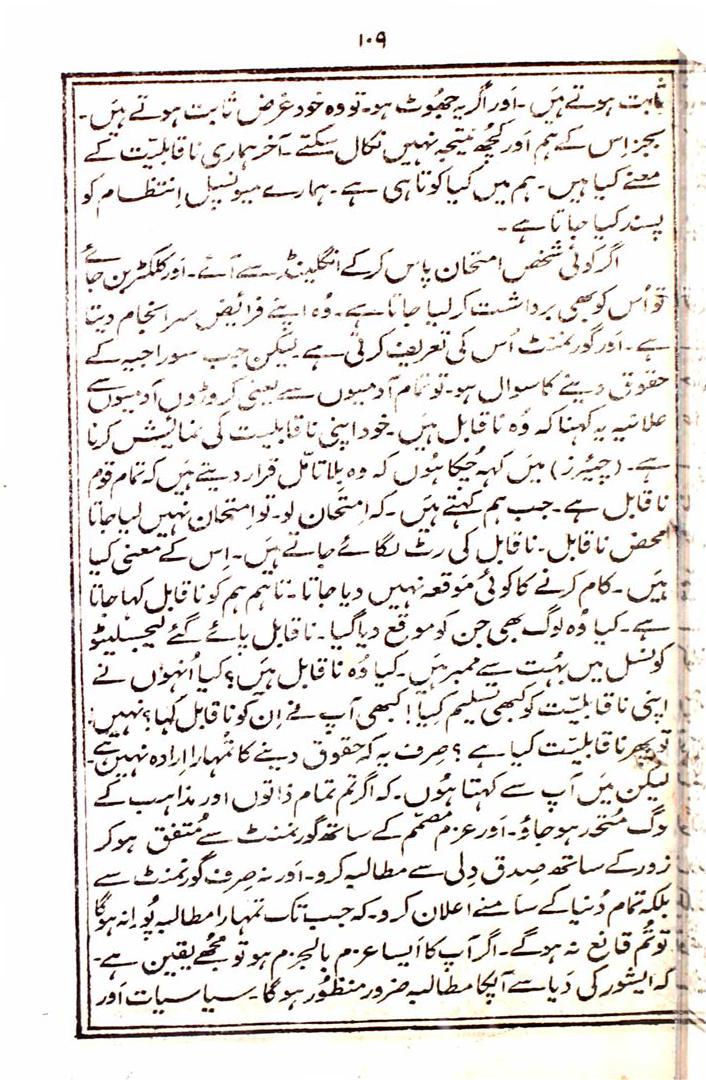 ۱۰۹
ثابت ہوتے ہیں۔ اور اگر یہ جھوٹ ہو۔ تو وہ خود غرض ثابت ہوتے ہیں۔
بجز اِس کے ہم اور کچھ نتیجہ نہیں نکال سکتے۔ آخر ہماری ناقابلیّت کے
معنے کیا ہیں۔ ہم میں کیا کوتاہی ہے۔ ہمارے میونسپل اِنتظام کو
پسند کیا جاتا ہے۔
اگر کوئی شخص امتحان پاس کرکے انگلینڈ سے آئے۔ اور کلکٹر بن جائے
تو اُس کو بھی برداشت کر لیا جاتا ہے۔ وُہ اپنے فرائیض سرانجام دیتا
ہے۔ اور گورنمنٹ اُس کی تعریف کرتی ہے لیکن جب سوراجیہ کے
حقوق دینے کا سوال ہو۔ تو تمام آدمیوں سے یعنی کروڑوں آدمیوں سے
علانیہ یہ کہنا کہ وُہ ناقابل ہیں۔ خود اپنی ناقابلیت کی نمائیش کرنا
ہے۔ (چیئرز) میں کہہ چُکا ہُوں کہ وہ بلا تامّل قرار دیتے ہیں کہ تمام قوم
ناقابل ہے۔ جب ہم کہتے ہیں۔ کہ اِمتحان لو۔ تو اِمتحان نہیں لیا جاتا
محض ناقابل۔ ناقابل کی رٹ لگائے جاتے ہیں۔ اِس کے معنی کیا
ہیں۔ کام کرنے کا کوئی موقعہ نہیں دیا جاتا۔ تاہم ہم کو ناقابل کہا جاتا
ہے۔ کیا وُہ لوگ بھی جن کو موقع دیا گیا۔ ناقابل پائے گئے لیجسلیٹو
کونسل میں بہُت سے ممبر ہیں۔ کیا وُہ ناقابل ہیں؟ کیا اُنہوں نے
اپنی ناقابلیّت کو کبھی تسلیم کیا! کبھی آپ نے اِن کو ناقابل کہا؟ نہیں!
تو پھر ناقابلیّت کیا ہے؟ صِرف یہ کہ حقوق دینے کا تُمہارا اِرادہ نہیں ہے۔
لیکن میں آپ سے کہتا ہُوں۔ کہ اگر تم تمام ذاتوں اور مذاہب کے
لوگ مُتحد ہو جاؤ۔ اور عزم مصمّم کے ساتھ گورنمنٹ سے مُتفق ہو کر
زور کے ساتھ صِدق دِلی سے مطالبہ کرو۔ اور نہ صِرف گورنمنٹ سے
بلکہ تمام دُنیا کے سامنے اعلان کرو۔ کہ جب تک تمہارا مطالبہ پُورا نہ ہوگا
تو تُم قانع نہ ہوگے۔ اگر آپ کا اَیسا عزم بالجزم ہو تو مجُھے یقین ہے۔
کہ ایشور کی دَیا سے آپکا مطالبہ ضرور منظُور ہوگا۔ سیاسیات اور